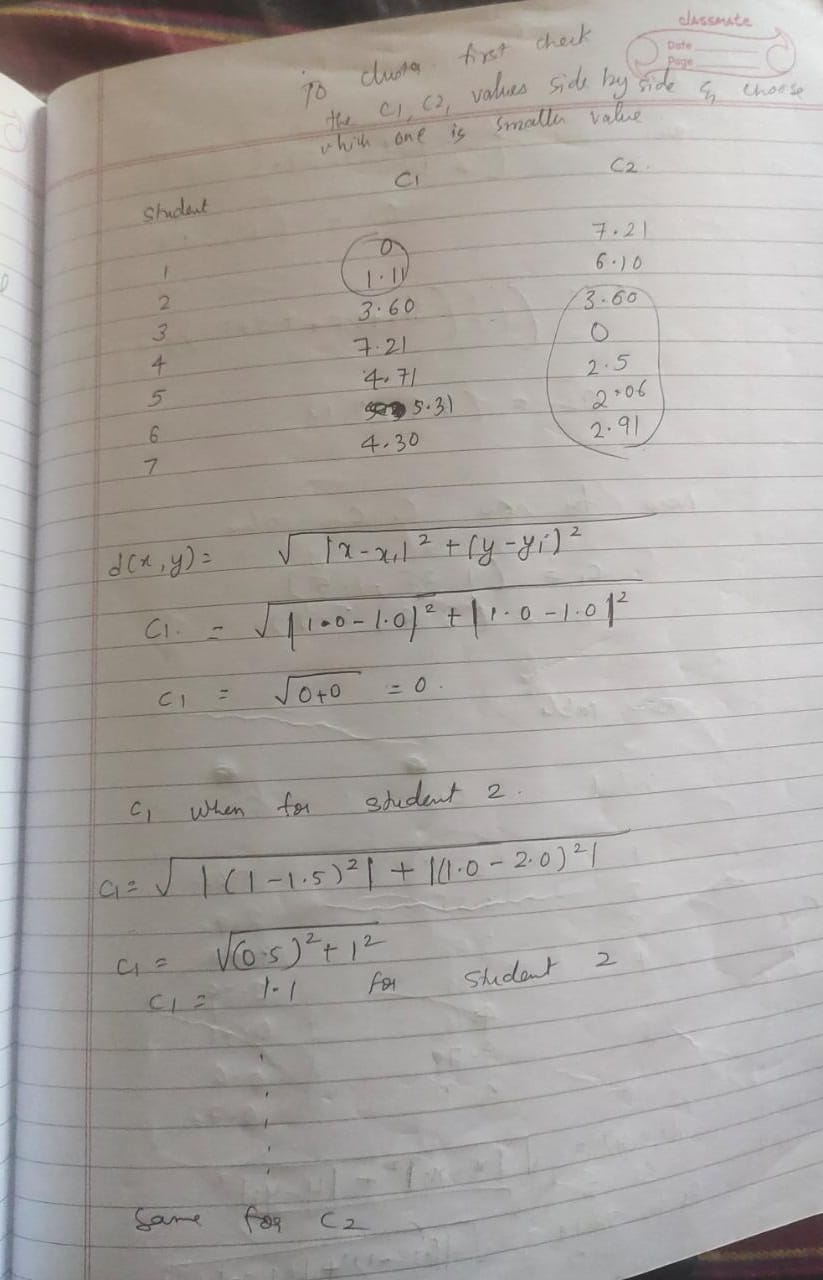 classmate
Date
Page
To cluster first check
the C1, C2, values side by side & choose
which one is smaller value
Student C1 C2
1 0 7.21
2 1.11 6.10
3 3.60 3.60
4 7.21 0
5 4.71 2.5
6 5.31 2.06
7 4.30 2.91
d(x,y) = √|x-x1|² + (y-yi)²
C1 = √|1.0-1.0|² + |1.0-1.0|²
C1 = √0+0 = 0.
C1 when for student 2.
C1 = √|(1-1.5)²| + |(1.0-2.0)²|
C1 = √(0.5)² + 1²
C1 = 1.1 for student 2
Same for C2